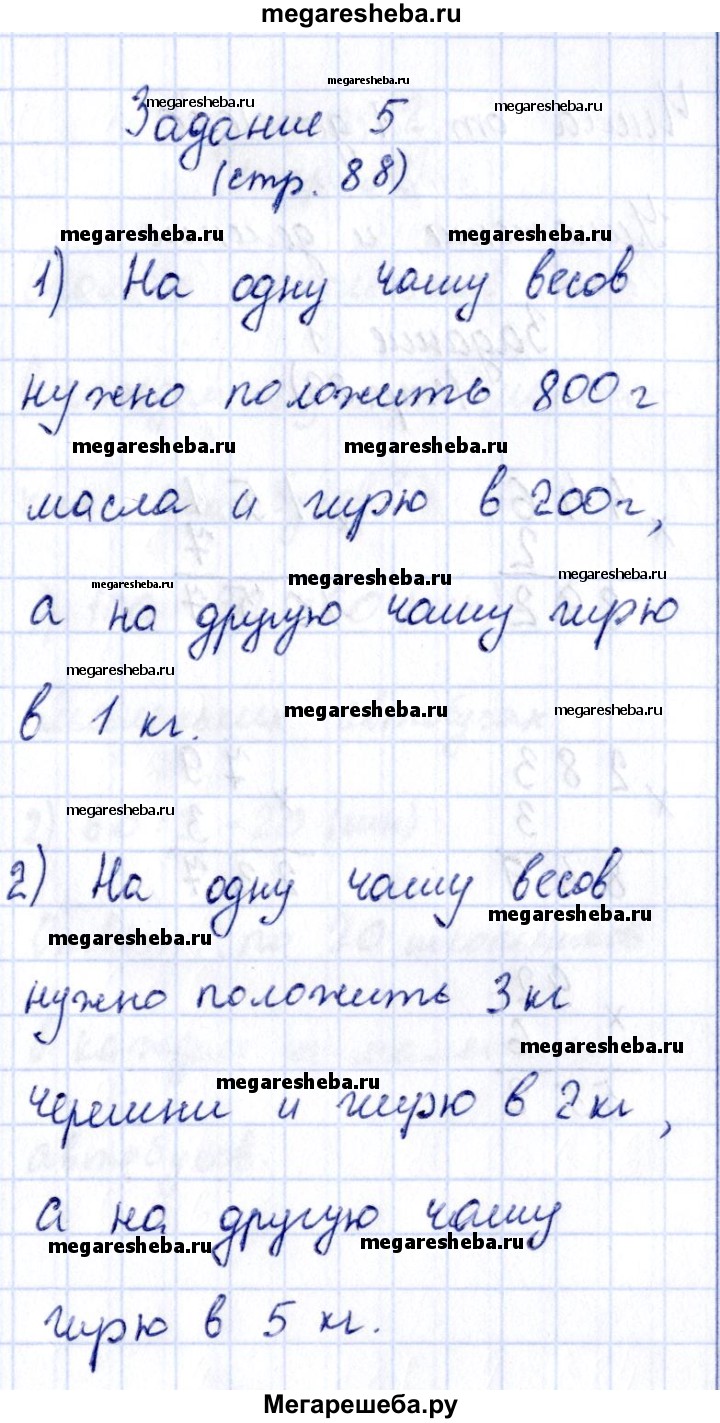 megaresheba.ru
megaresheba.ru
Задание 5
megaresheba.ru
megaresheba.ru
(стр. 88)
megaresheba.ru megaresheba.ru
1) На одну чашу весов
нужно положить 800г
megaresheba.ru megaresheba.ru
масла и гирю в 200г,
megaresheba.ru megaresheba.ru megaresheba.ru
а на другую чашу гирю
megaresheba.ru
в 1 кг.
megaresheba.ru megaresheba.ru
megaresheba.ru
2) На одну чашу весов
megaresheba.ru
megaresheba.ru
нужно положить 3кг
megaresheba.ru
megaresheba.ru
черешни и гирю в 2кг,
а на другую чашу
megaresheba.ru megaresheba.ru
гирю в 5 кг.
Мегарешеба.ру